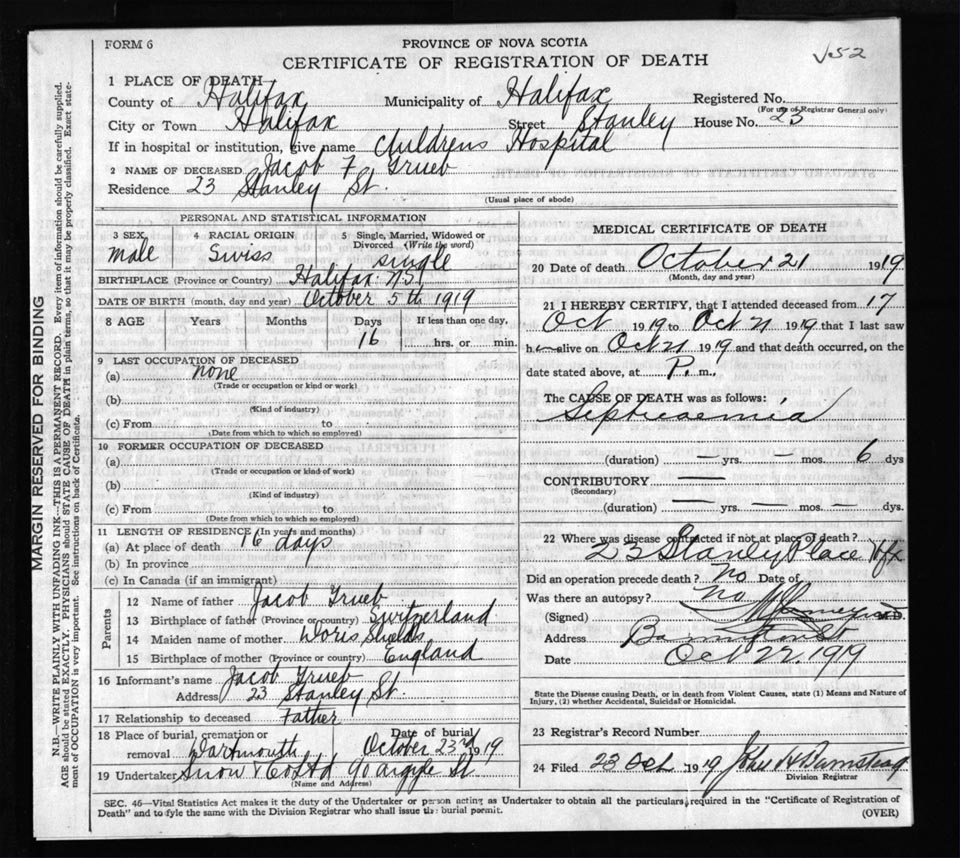 FORM 6
PROVINCE OF NOVA SCOTIA
CERTIFICATE OF REGISTRATION OF DEATH
V52
1 PLACE OF DEATH
County of Halifax Municipality of Halifax Registered No.
(For use of Registrar General only)
City or Town Halifax Street Stanley House No. 23
If in hospital or institution, give name Childrens Hospital
2 NAME OF DECEASED Jacob F Grueb
Residence 23 Stanley St.
(Usual place of abode)
PERSONAL AND STATISTICAL INFORMATION
3 SEX 4 RACIAL ORIGIN 5 Single, Married, Widowed or Divorced (Write the word)
male Swiss single
BIRTHPLACE (Province or Country) Halifax N.S.
DATE OF BIRTH (month, day and year) October 5th 1919
8 AGE Years Months Days If less than one day,
16 hrs. or min.
9 LAST OCCUPATION OF DECEASED
(a) none
(Trade or occupation or kind or work)
(b)
(Kind of industry)
(c) From to
(Date from which to which so employed)
10 FORMER OCCUPATION OF DECEASED
(a)
(Trade or occupation or kind of work)
(b)
(Kind of industry)
(c) From to
(Date from which to which so employed)
11 LENGTH OF RESIDENCE (In years and months)
(a) At place of death 16 days
(b) In province
(c) In Canada (if an immigrant)
Parents
12 Name of father Jacob Grueb
13 Birthplace of father (Province or country) Switzerland
14 Maiden name of mother Doris Shields
15 Birthplace of mother (Province or country) England
16 Informant's name Jacob Grueb
Address 23 Stanley St.
17 Relationship to deceased Father
18 Place of burial, cremation or removal Dartmouth Date of burial October 23rd 1919
19 Undertaker Snow & Co Ltd 90 Argyle St
(Name and Address)
MEDICAL CERTIFICATE OF DEATH
20 Date of death October 21 1919
(Month, day and year)
21 I HEREBY CERTIFY, that I attended deceased from 17
Oct 1919 to Oct 21 1919 that I last saw
him alive on Oct 21 1919 and that death occurred, on the
date stated above, at P. m.,
The CAUSE OF DEATH was as follows:
Septicaemia
(duration) — yrs. — mos. 6 dys
CONTRIBUTORY —
(Secondary)
(duration) — yrs. — mos. — dys.
22 Where was disease contracted if not at place of death?
23 Stanly Place Hfx
Did an operation precede death? No Date of
Was there an autopsy? No
(Signed) M.D.
Address
Date Oct 22. 1919
State the Disease causing Death, or in death from Violent Causes, state (1) Means and Nature of
Injury, (2) whether Accidental, Suicidal or Homicidal.
23 Registrar's Record Number
24 Filed 23 Oct 1919 John H
Division Registrar
SEC. 46—Vital Statistics Act makes it the duty of the Undertaker or person acting as Undertaker to obtain all the particulars required in the "Certificate of Registration of
Death" and to fyle the same with the Division Registrar who shall issue the burial permit.
(OVER)
MARGIN RESERVED FOR BINDING
N.B.—WRITE PLAINLY WITH UNFADING INK—THIS IS A PERMANENT RECORD. Every item of information should be carefully supplied.
AGE should be stated EXACTLY. PHYSICIANS should STATE CAUSE OF DEATH in plain terms, so that it may be properly classified. Exact statement of OCCUPATION is very important. See instructions on back of Certificate.